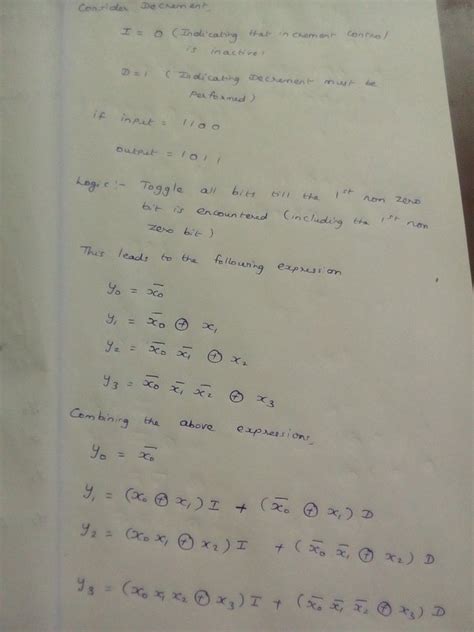 Consider Decrement.
I = 0 (Indicating that increment control
is inactive)
D = 1 (Indicating Decrement must be
performed)
if input = 1100
output = 1011
Logic:- Toggle all bits till the 1st non zero
bit is encountered (including the 1st non
zero bit)
This leads to the following expression
y₀ = x̄₀
y₁ = x̄₀ ⊕ x₁
y₂ = x̄₀ x̄₁ ⊕ x₂
y₃ = x̄₀ x̄₁ x̄₂ ⊕ x₃
Combining the above expressions,
y₀ = x̄₀
y₁ = (x₀ ⊕ x₁) I + (x̄₀ ⊕ x₁) D
y₂ = (x₀ x₁ ⊕ x₂) I + (x̄₀ x̄₁ ⊕ x₂) D
y₃ = (x₀ x₁ x₂ ⊕ x₃) I + (x̄₀ x̄₁ x̄₂ ⊕ x₃) D